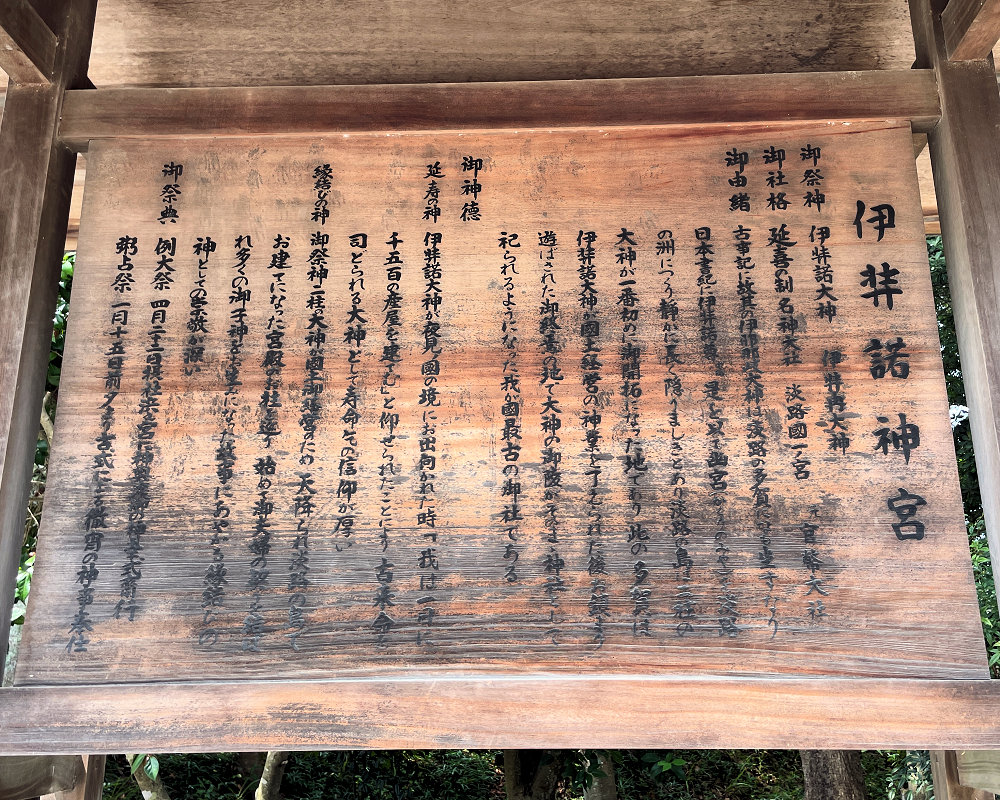 伊弉諾神宮
御祭神 伊弉諾大神 伊弉冉大神
御社格 延喜の制名神大社 淡路國一ノ宮 官幣大社
御由緒 古事記に故其の伊弉諾大神は淡路の多賀に坐すなり
日本書紀に伊弉諾尊 是を以て幽宮を淡路
の洲につくり静かに長く隠りましきとあり淡路の島は
大神が一番初めに御開拓になった地であり 此の多賀は
伊弉諾大神が國土経営の神業を了えられた後
遊ばされた御終焉の地で大神の御陵がそのまま神社として
祀られるようになった我が國最古の御社である
御神徳
延寿の神 伊弉諾大神が夜見の國の境にお出向かれた時「我は一日に
千五百の産屋を建てむ」と仰せられたことにより 古来命を
司どられる大神として寿命をその信仰が厚い
縁結びの神 御祭神二柱の大神が國土御経営のため 天降られ淡路の
お建てになった宮殿がお社で 始めて御夫婦の
れ多くの御子神をお生みになった故事にあやかる縁結びの
神としての崇敬が深い
御祭典
例大祭 四月二十二日
粥占祭 一月十五日前夕より古式による徹宵の神事奉仕